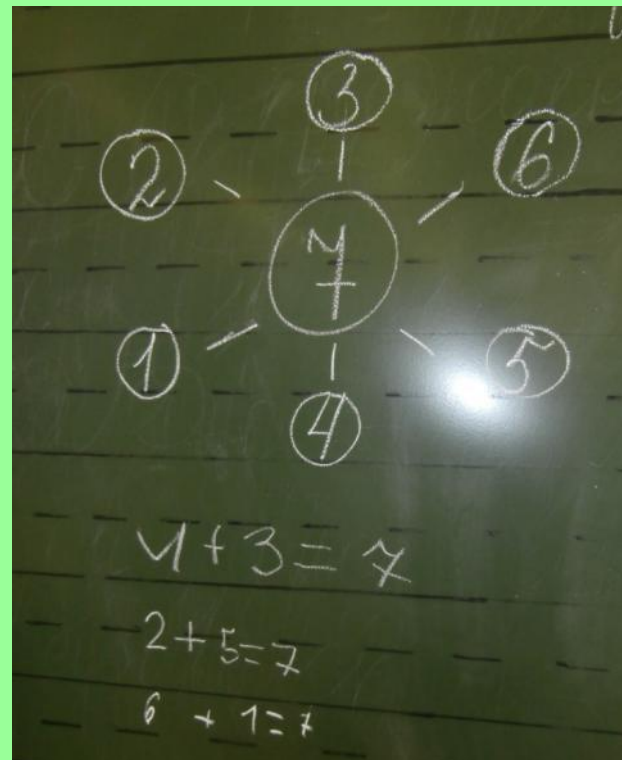 3
2 6
7
1 5
4
4+3=7
2+5=7
6+1=7